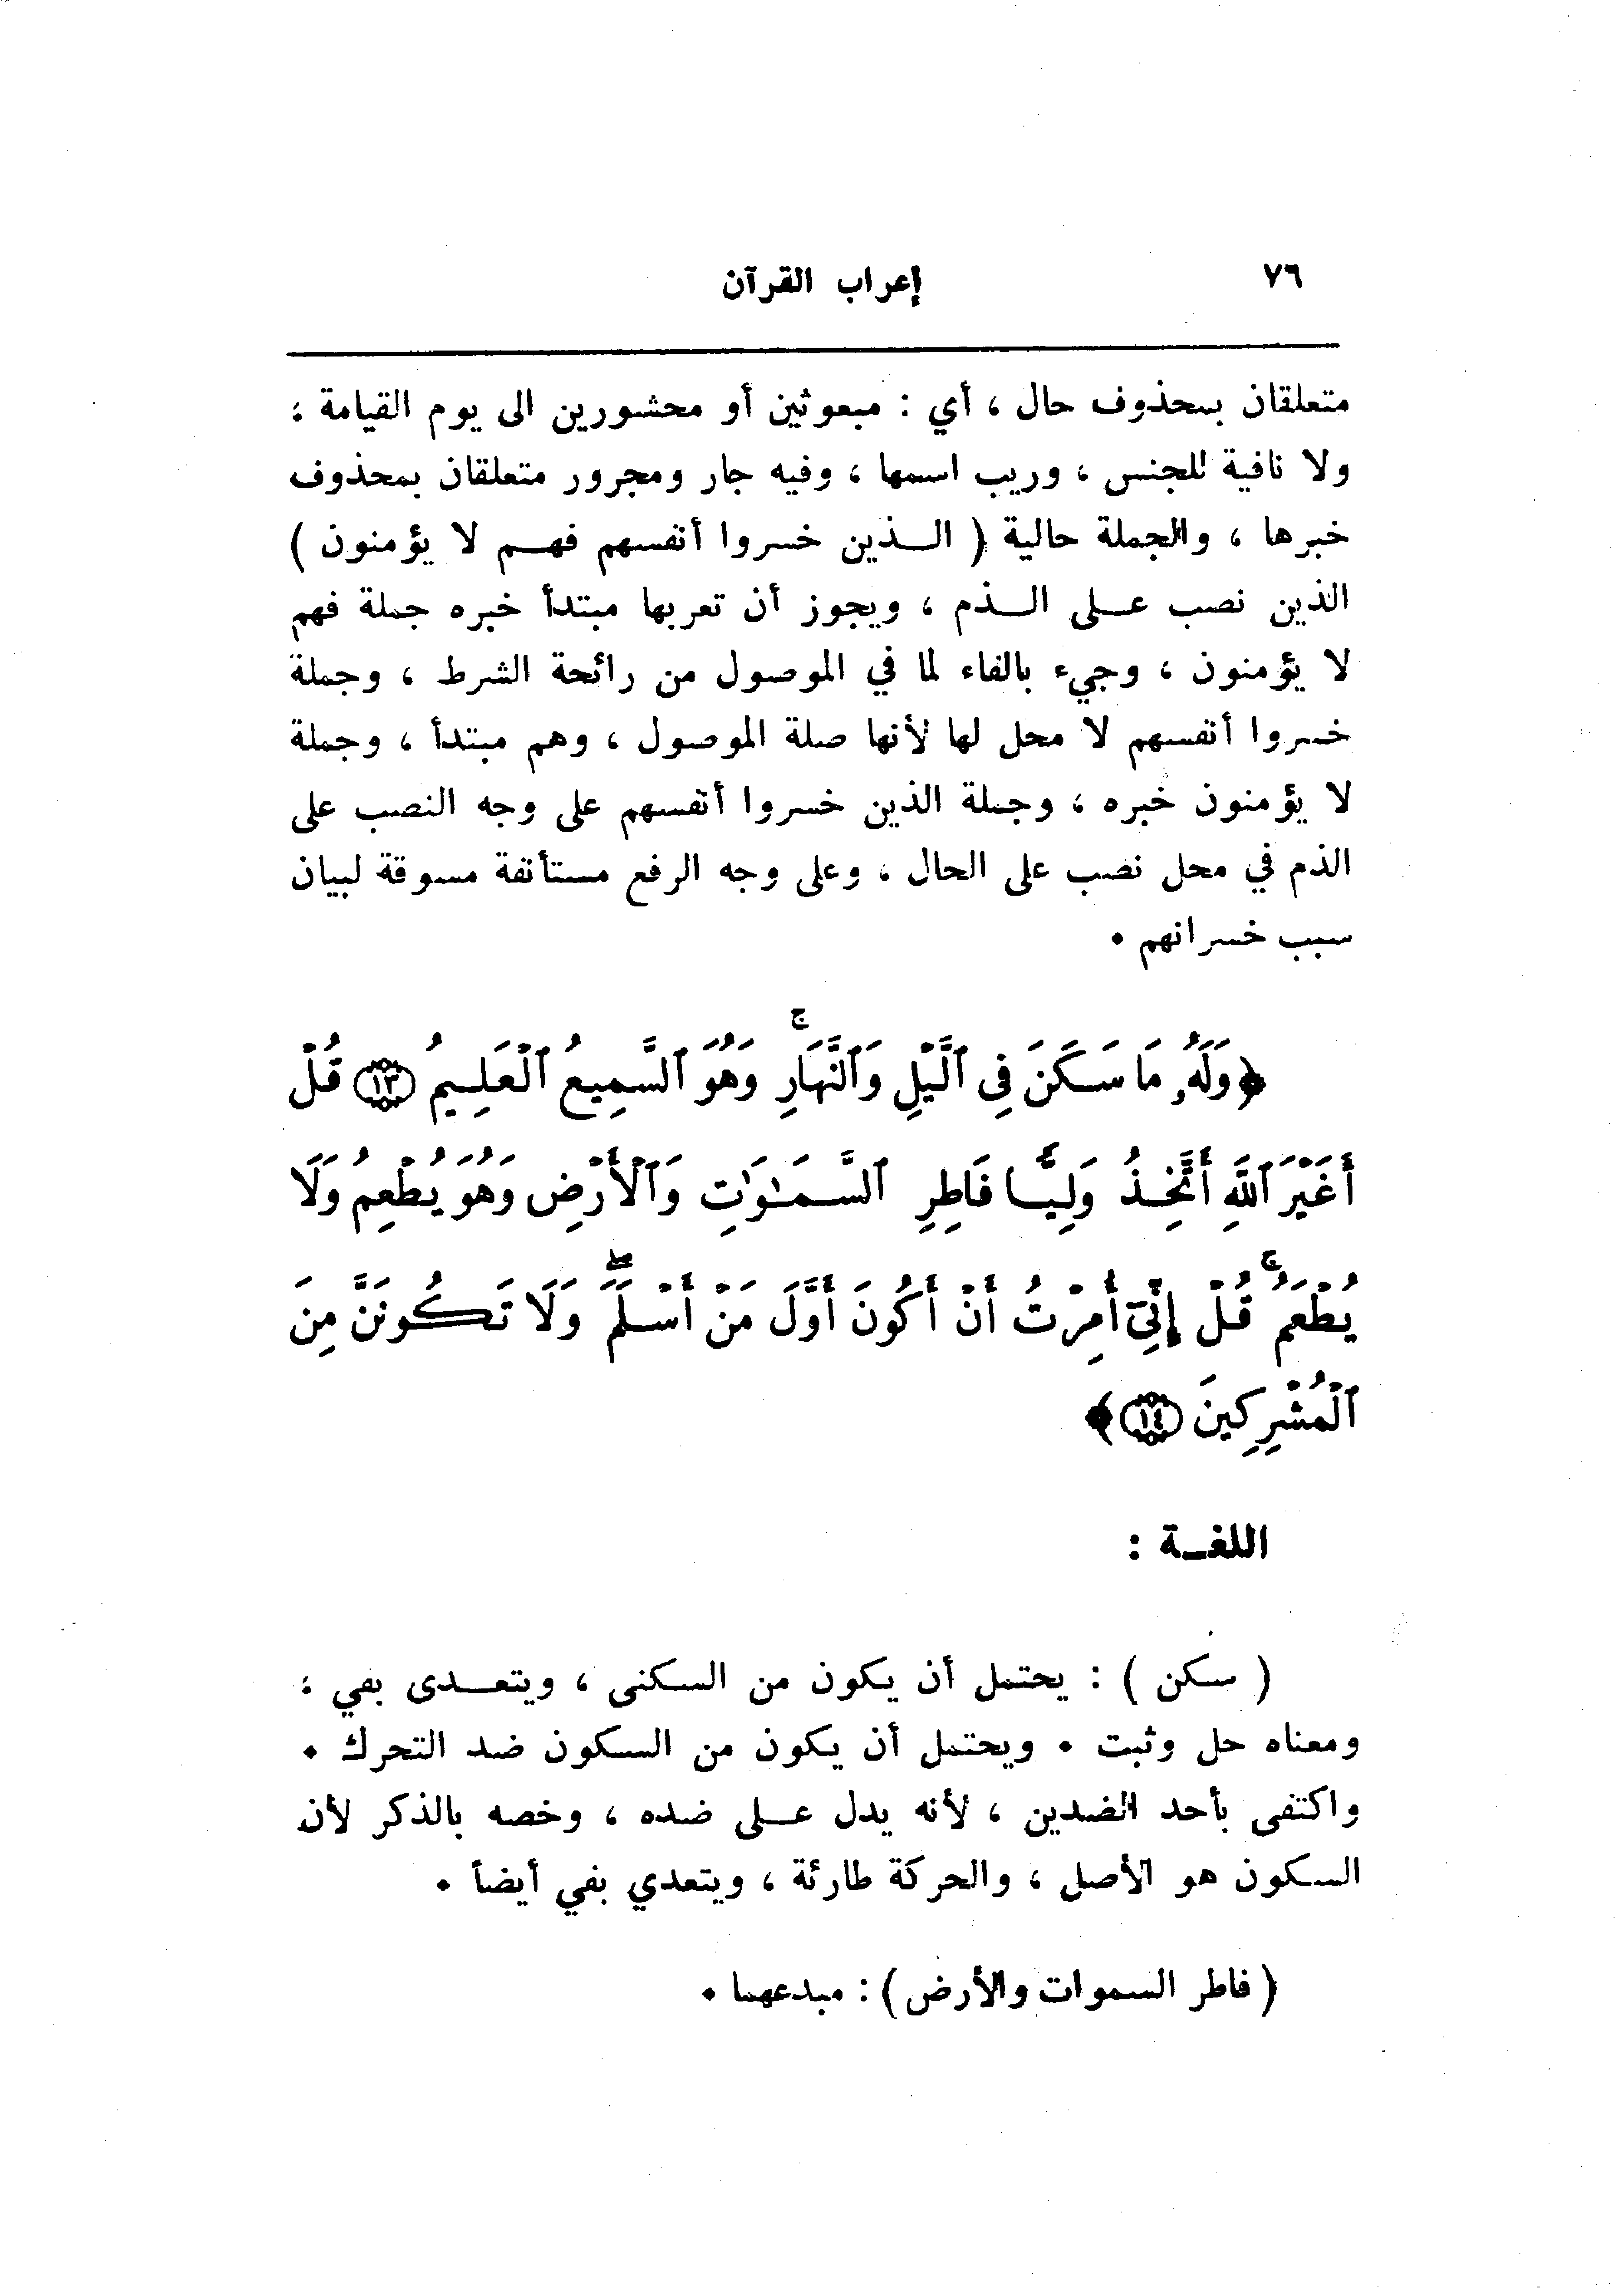 ٧٦
إعراب القرآن
متعلقان بمحذوف حال ، أي : مبعوثين أو محشورين الى يوم القيامة ،
ولا نافية للجنس ، وريب اسمها ، وفيه جار ومجرور متعلقان بمحذوف
خبرها ، والجملة حالية ( الــذين خسروا أنفسهم فهــم لا يؤمنون )
الذين نصب عــلى الــذم ، ويجوز أن تعربها مبتدأ خبره جملة فهم
لا يؤمنون ، وجيء بالفاء لما في الموصول من رائحة الشرط ، وجملة
خسروا أنفسهم لا محل لها لأنها صلة الموصول ، وهم مبتدأ ، وجملة
لا يؤمنون خبره ، وجملة الذين خسروا أنفسهم على وجه النصب على
الذم في محل نصب على الحال ، وعلى وجه الرفع مستأنفة مسوقة لبيان
سبب خسرانهم •
﴿وَلَهُۥ مَا سَكَنَ فِى ٱلَّيْلِ وَٱلنَّهَارِۚ وَهُوَ ٱلسَّمِيعُ ٱلْعَلِيمُ ١٣ قُلْ
أَغَيْرَ ٱللَّهِ أَتَّخِذُ وَلِيًّا فَاطِرِ ٱلسَّمَٰوَٰتِ وَٱلْأَرْضِ وَهُوَ يُطْعِمُ وَلَا
يُطْعَمُۚ قُلْ إِنِّىٓ أُمِرْتُ أَنْ أَكُونَ أَوَّلَ مَنْ أَسْلَمَۖ وَلَا تَكُونَنَّ مِنَ
ٱلْمُشْرِكِينَ ١٤﴾
اللغــة :
( سكن ) : يحتمل أن يكون من السكنى ، ويتعــدى بفي ،
ومعناه حل وثبت • ويحتمل أن يكون من السكون ضد التحرك •
واكتفى بأحد الضدين ، لأنه يدل عــلى ضده ، وخصه بالذكر لأن
السكون هو الأصل ، والحركة طارئة ، ويتعدي بفي أيضاً •
( فاطر السموات والأرض ) : مبدعهما •